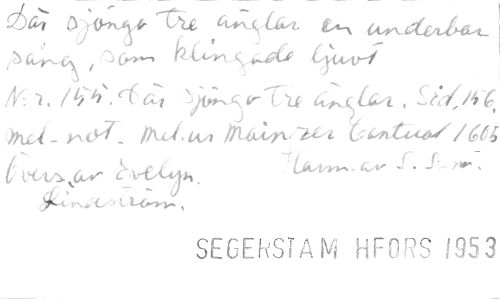 Där sjöngo tre änglar en underbar
sång, som klingade ljuvt
N:r. 155. Där sjöngo tre änglar. Sid, 156.
mel-not. mel. ur Mainzer Cantual 1605
Övers. av Evelyn Harm. av S. S-m.
Lindström.
SEGERSTAM HFORS 1953